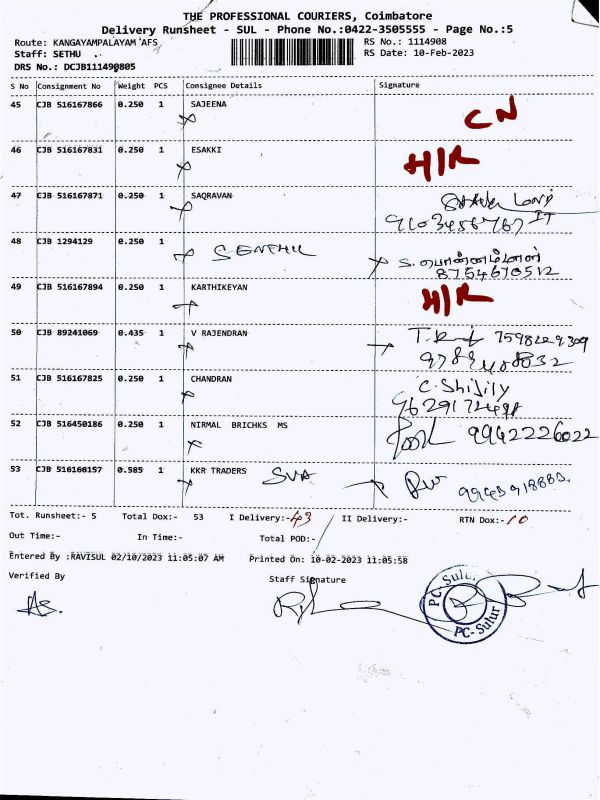 THE PROFESSIONAL COURIERS, Coimbatore
Delivery Runsheet - SUL - Phone No.:0422-3505555 - Page No.:5
Route: KANGAYAMPALAYAM AFS
RS No.: 1114908
Staff: SETHU
RS Date: 10-Feb-2023
DRS No.: DCJB111490805
S No Consignment No Weight PCS Consignee Details Signature
45 CJB 516167866 0.250 1 SAJEENA CN
46 CJB 516167831 0.250 1 ESAKKI H/R
47 CJB 516167871 0.250 1 SAQRAVAN
9103456767 IT
48 CJB 1294129 0.250 1 SENTHIL
8754670512
49 CJB 516167894 0.250 1 KARTHIKEYAN H/R
50 CJB 89241069 0.435 1 V RAJENDRAN
51 CJB 516167825 0.250 1 CHANDRAN C. Shijily
52 CJB 516450186 0.250 1 NIRMAL BRICHKS MS 9942226022
53 CJB 516166157 0.585 1 KKR TRADERS SVA
Tot. Runsheet:- 5 Total Dox:- 53 I Delivery:-43 II Delivery:- RTN Dox:-10
Out Time:- In Time:- Total POD:-
Entered By :RAVISUL 02/10/2023 11:05:07 AM Printed On: 10-02-2023 11:05:58
Verified By Staff Signature
PC-Sulur
PC-Sulur